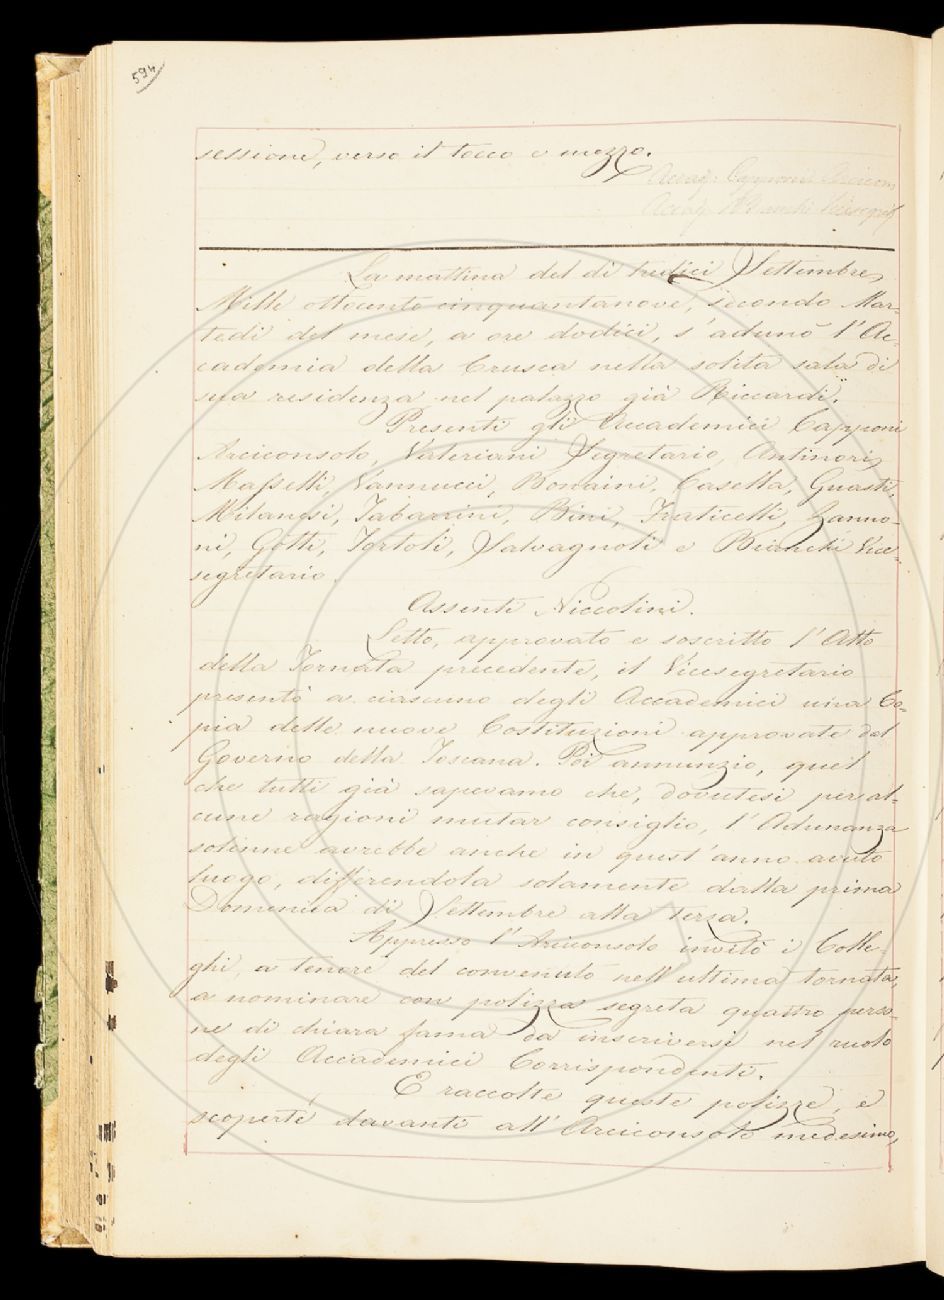 594
sessione, verso il tocco e mezzo.
Accad. Capponi Arcicons
Accad. B. Bianchi Vicesegret
La mattina del dì tredici Settembre,
Mille ottocento cinquantanove, secondo Mar-
tedì del mese, a ore dodici, s'adunò l'Ac-
cademia della Crusca nella solita sala di
sua residenza nel palazzo già Riccardi.
Presenti gli Accademici Capponi
Arciconsolo, Valeriani Segretario, Antinori,
Masselli, Vannucci, Bonaini, Casella, Guasti,
Milanesi, Tabarrini, Bini, Fraticelli, Zanno-
ni, Gotti, Tortoli, Salvagnoli e Bianchi Vice-
segretario.
Assente Niccolini.
Letto, approvato e soscritto l'Atto
della Tornata precedente, il Vicesegretario
presentò a ciascuno degli Accademici una Co-
pia delle nuove Costituzioni approvate dal
Governo della Toscana. Poi annunziò, quel
che tutti già sapevamo che, dovutesi per al-
cune ragioni mutar consiglio, l'Adunanza
solenne avrebbe anche in quest'anno avuto
luogo, differendola solamente dalla prima
Domenica di Settembre alla terza.
Appresso l'Arciconsolo invitò i Colle-
ghi, a tenore del convenuto nell'ultima tornata,
a nominare con polizza segreta quattro perso-
ne di chiara fama da inscriversi nel ruolo
degli Accademici Corrispondenti.
E raccolte queste polizze, e
scoperte davanti all'Arciconsolo medesimo,